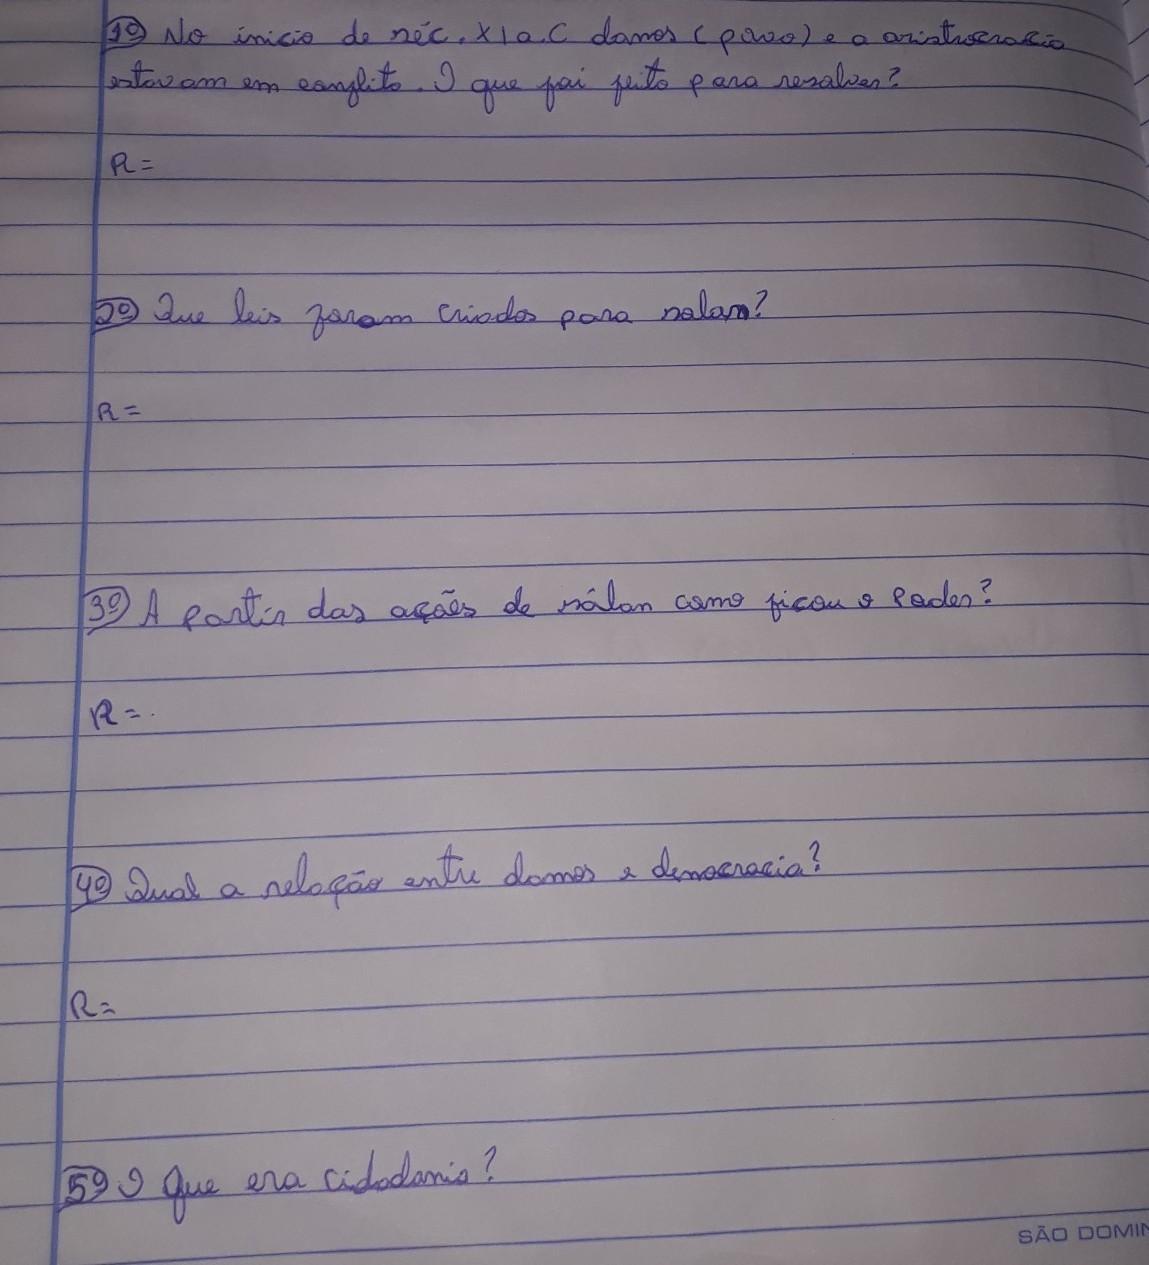 1º) No inicio de séc. XI a.C damos (povo) e a aristrocracia
estavam em conflito. O que foi feito para resolver?
R=
2º) Que leis foram criadas para solan?
R=
3º) A partir das ações de sólan como ficou o Poder?
R=.
4º) Qual a relação entre damos e democracia?
R=
5º) O que era cidadania?
SÃO DOMIN